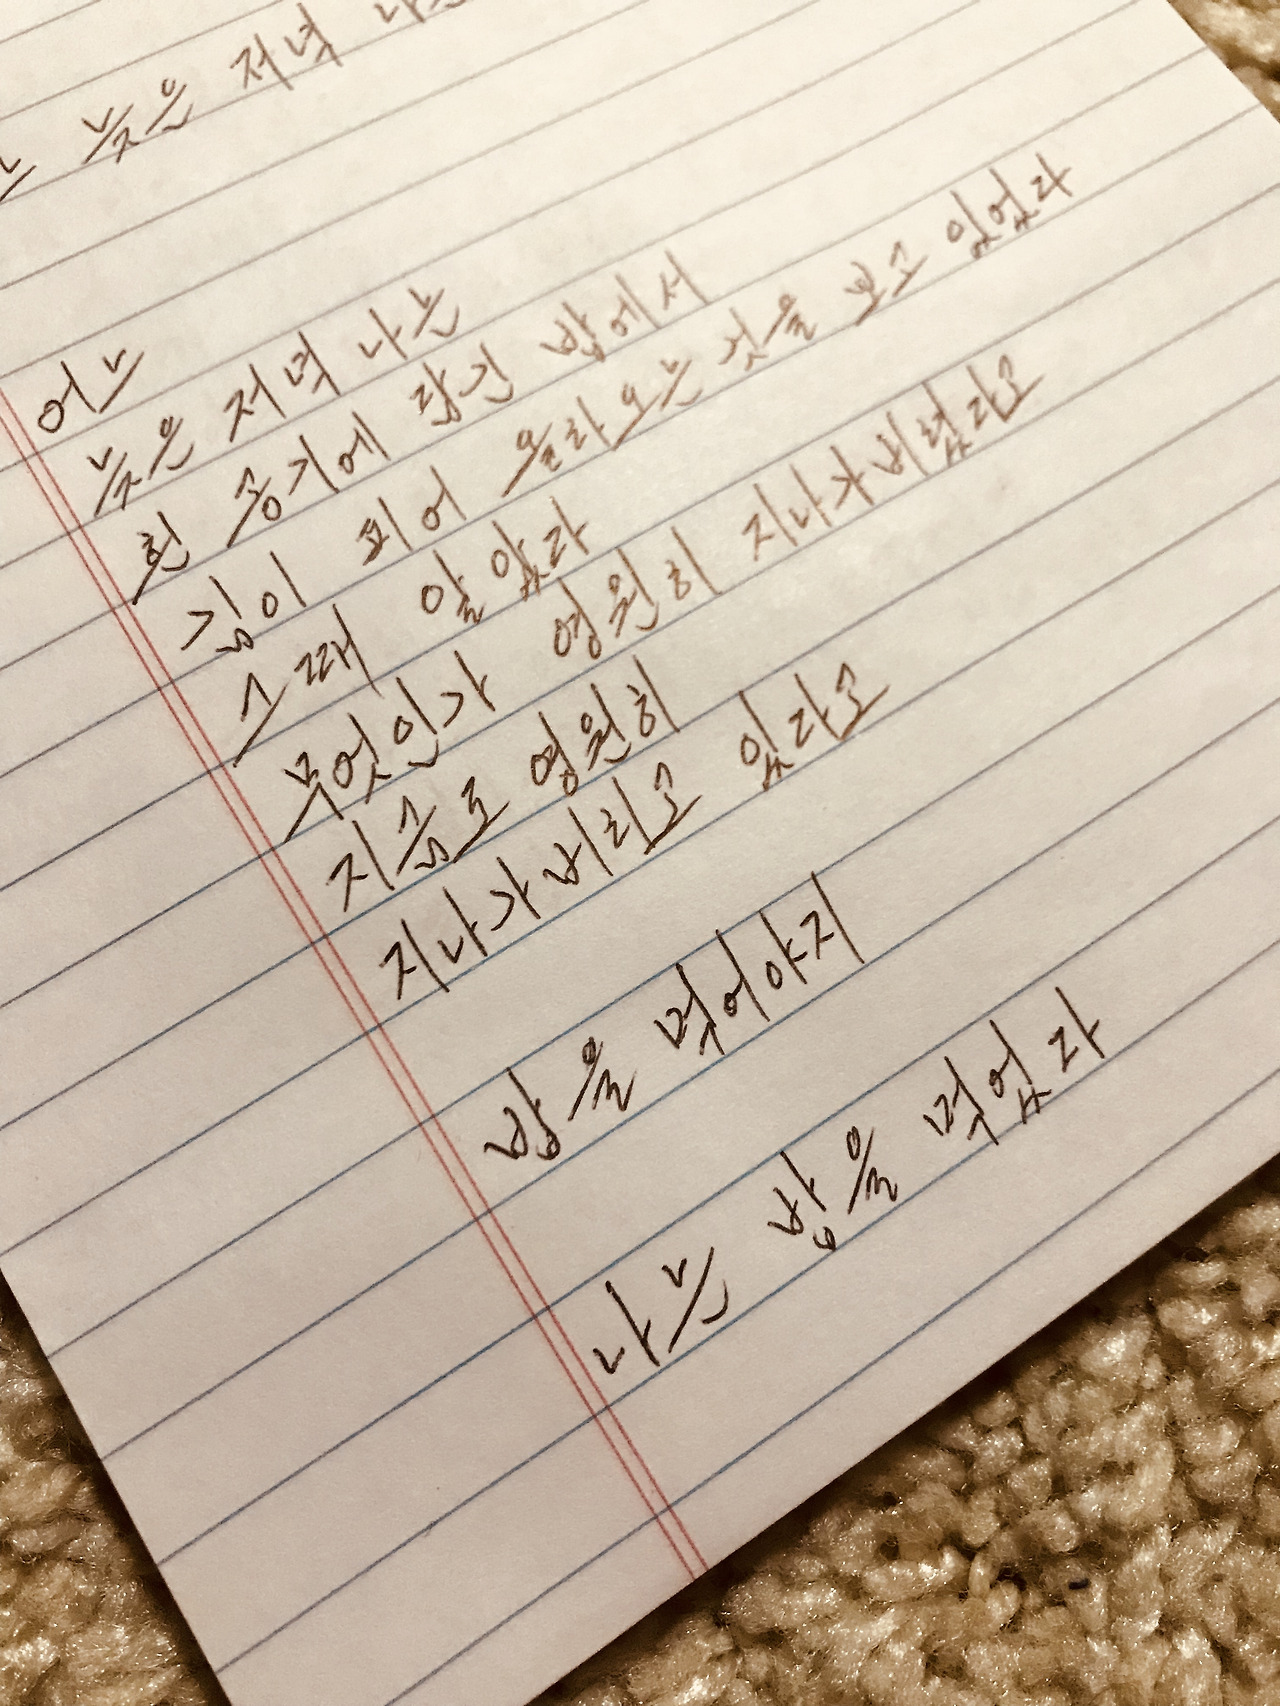 늦은 저녁
어느
늦은 저녁 나는
흰 공기에 담긴 밥에서
김이 피어 올라오는 것을 보고 있었다
그때 알았다
무엇인가 영원히 지나가버렸다고
지금로 영원히
지나가버리고 있다고
밥을 먹어야지
나는 밥을 먹었다